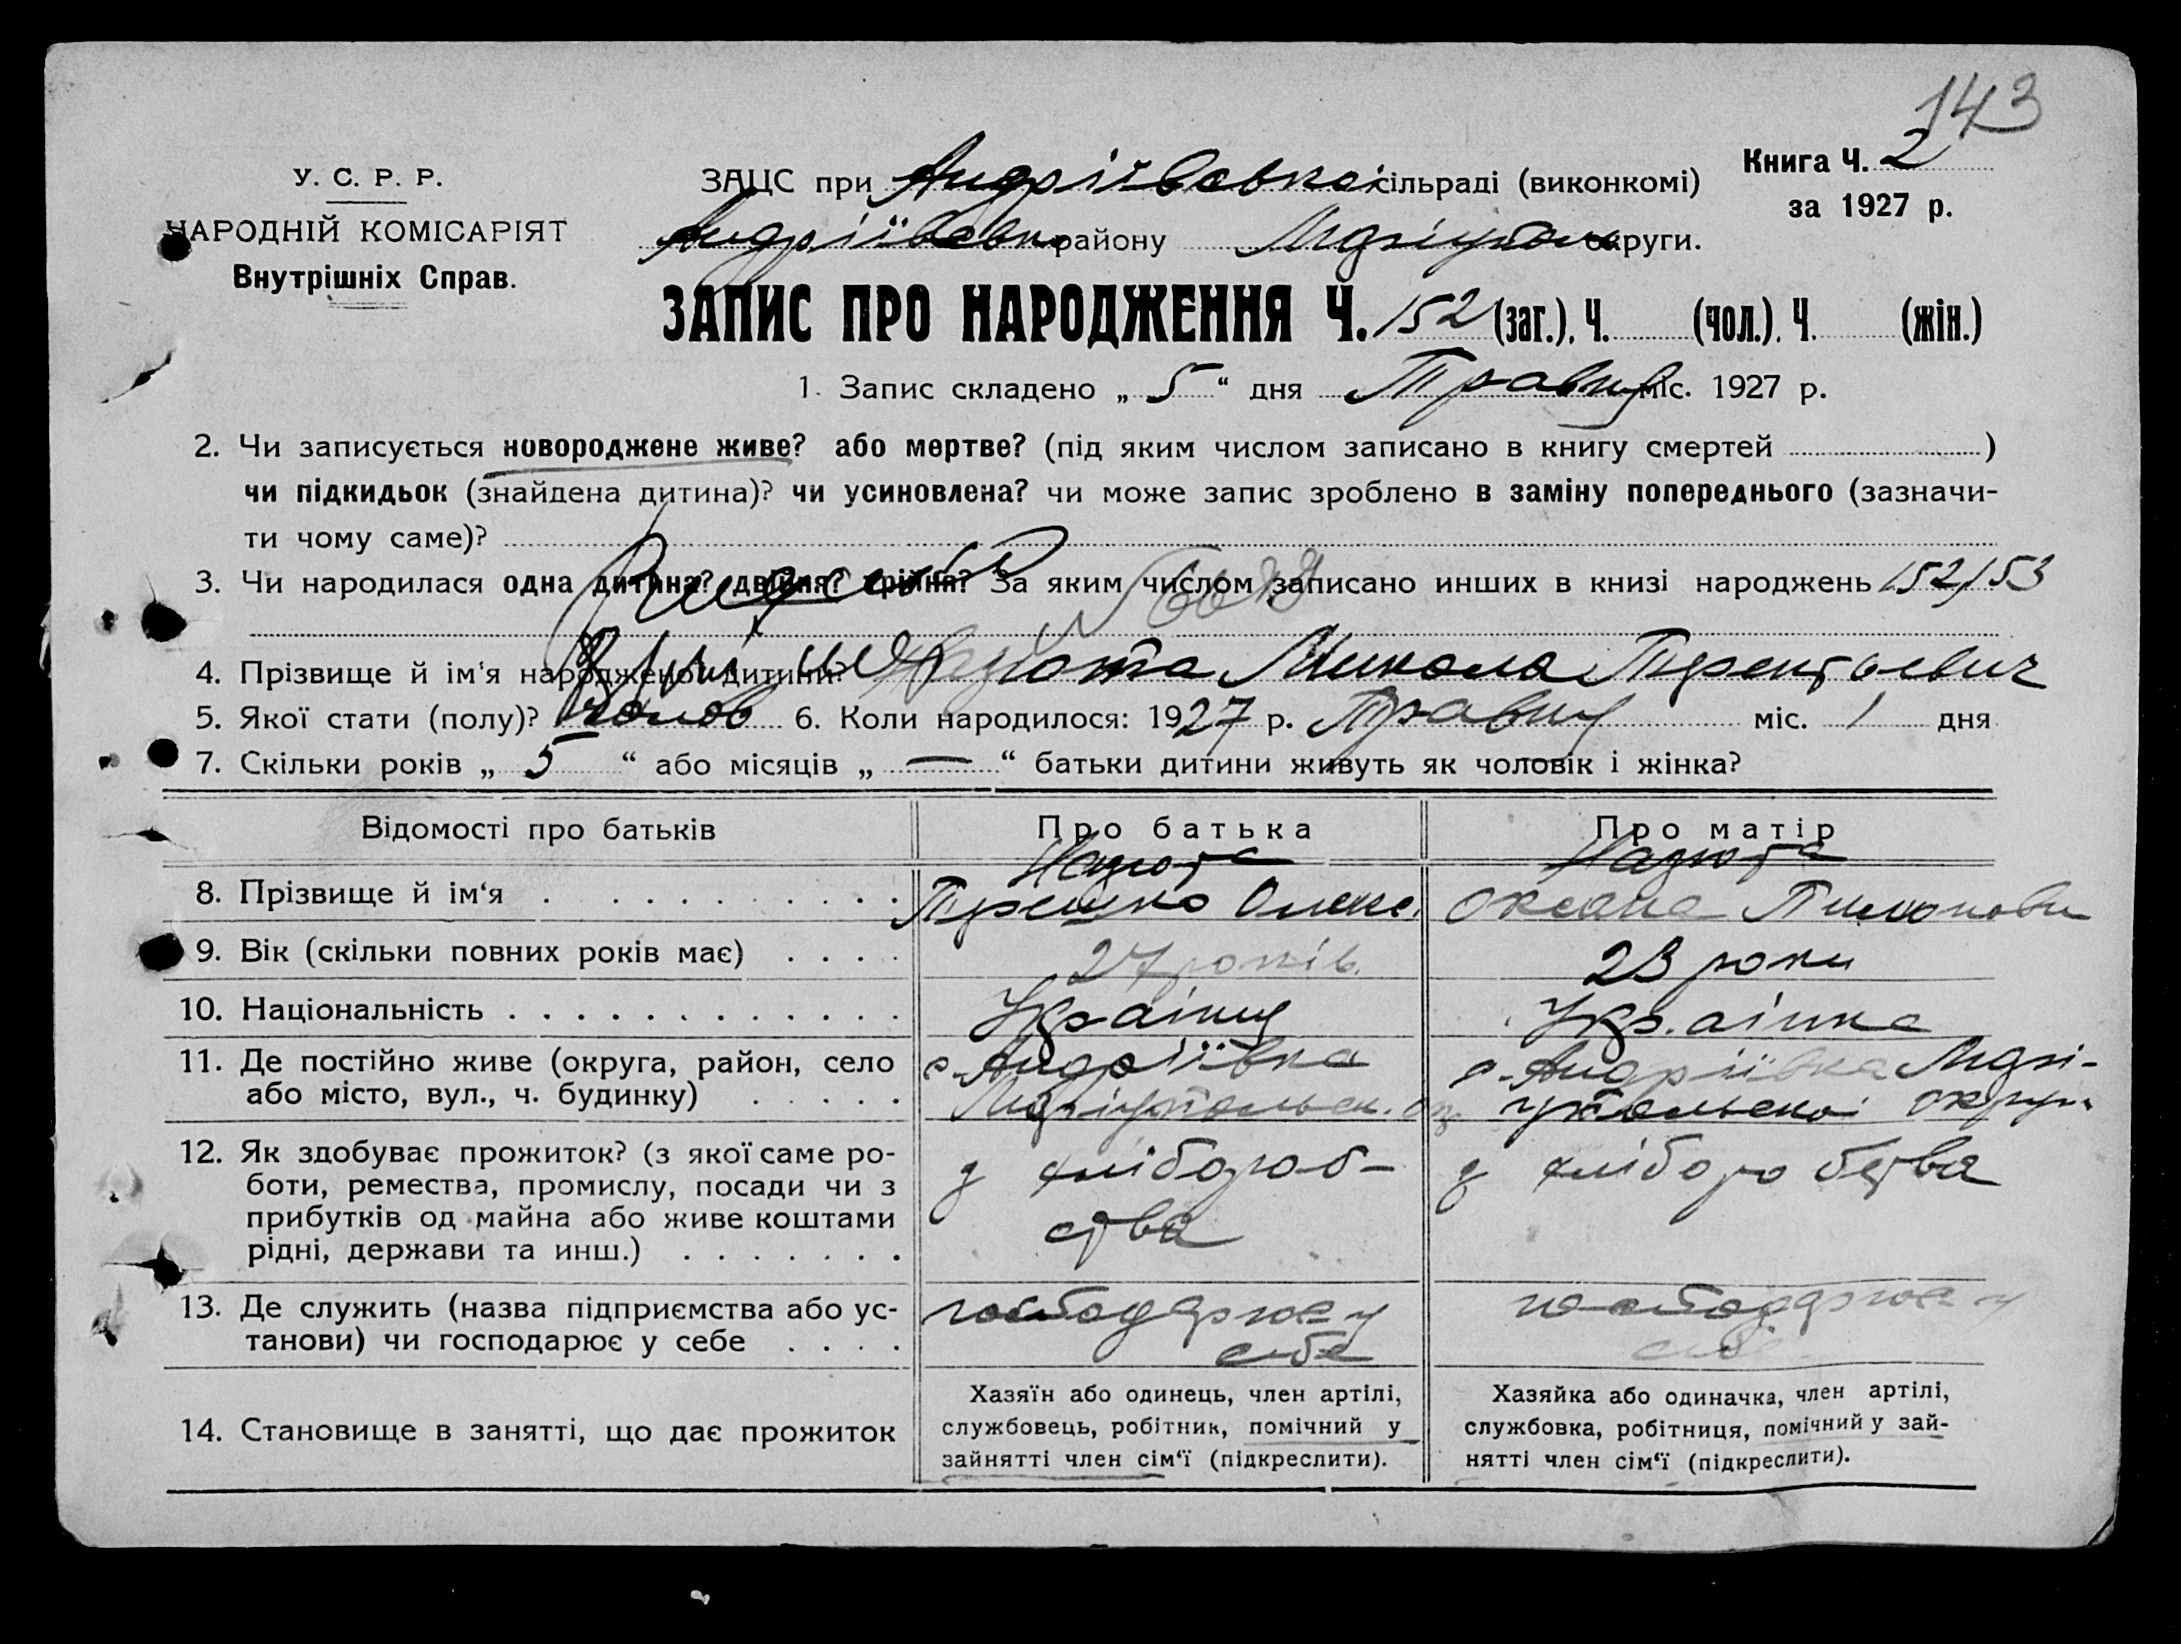 143
У. С. Р. Р.
НАРОДНІЙ КОМІСАРІЯТ
Внутрішніх Справ.
ЗАЦС при Андріївській сільраді (виконкомі)
Книга Ч. 2
за 1927 р.
Андріївськ району Маріупол округи.
ЗАПИС ПРО НАРОДЖЕННЯ Ч. 152 (заг.), Ч. (чол.), Ч. (жін.)
1. Запис складено „ 5 “ дня Травня міс. 1927 р.
2. Чи записується новороджене живе? або мертве? (під яким числом записано в книгу смертей )
чи підкидьок (знайдена дитина)? чи усиновлена? чи може запис зроблено в заміну попереднього (зазначи-
ти чому саме)?
3. Чи народилася одна дитина? двійня? трійня? За яким числом записано инших в книзі народжень 152/153
4. Прізвище й ім'я народженої дитини? Микола Терентьевич
5. Якої стати (полу)? Чолов 6. Коли народилося: 1927 р. Травня міс. 1 дня
7. Скільки років „ 5 “ або місяців „ — “ батьки дитини живуть як чоловік і жінка?
Відомості про батьків
Про батька
Про матір
8. Прізвище й ім‘я
Терешко Олекс.
Оксана
9. Вік (скільки повних років має)
27 років.
23 роки
10. Національність
Українец
Українка
11. Де постійно живе (округа, район, село
або місто, вул., ч. будинку)
с. Андріївка
Маріупольськ. ок
с. Андріївка Марі-
упольскоі округи
12. Як здобуває прожиток? (з якої саме ро-
боти, ремества, промислу, посади чи з
прибутків од майна або живе коштами
рідні, держави та инш.)
з хлібороб-
ства
з хлібороб ства
13. Де служить (назва підприємства або ус-
танови) чи господарює у себе
господарює у
себе
господарює у
себе
14. Становище в занятті, що дає прожиток
Хазяїн або одинець, член артілі,
службовець, робітник, помічний у
зайнятті член сім‘ї (підкреслити).
Хазяйка або одиначка, член артілі,
службовка, робітниця, помічний у зай-
нятті член сім‘ї (підкреслити).